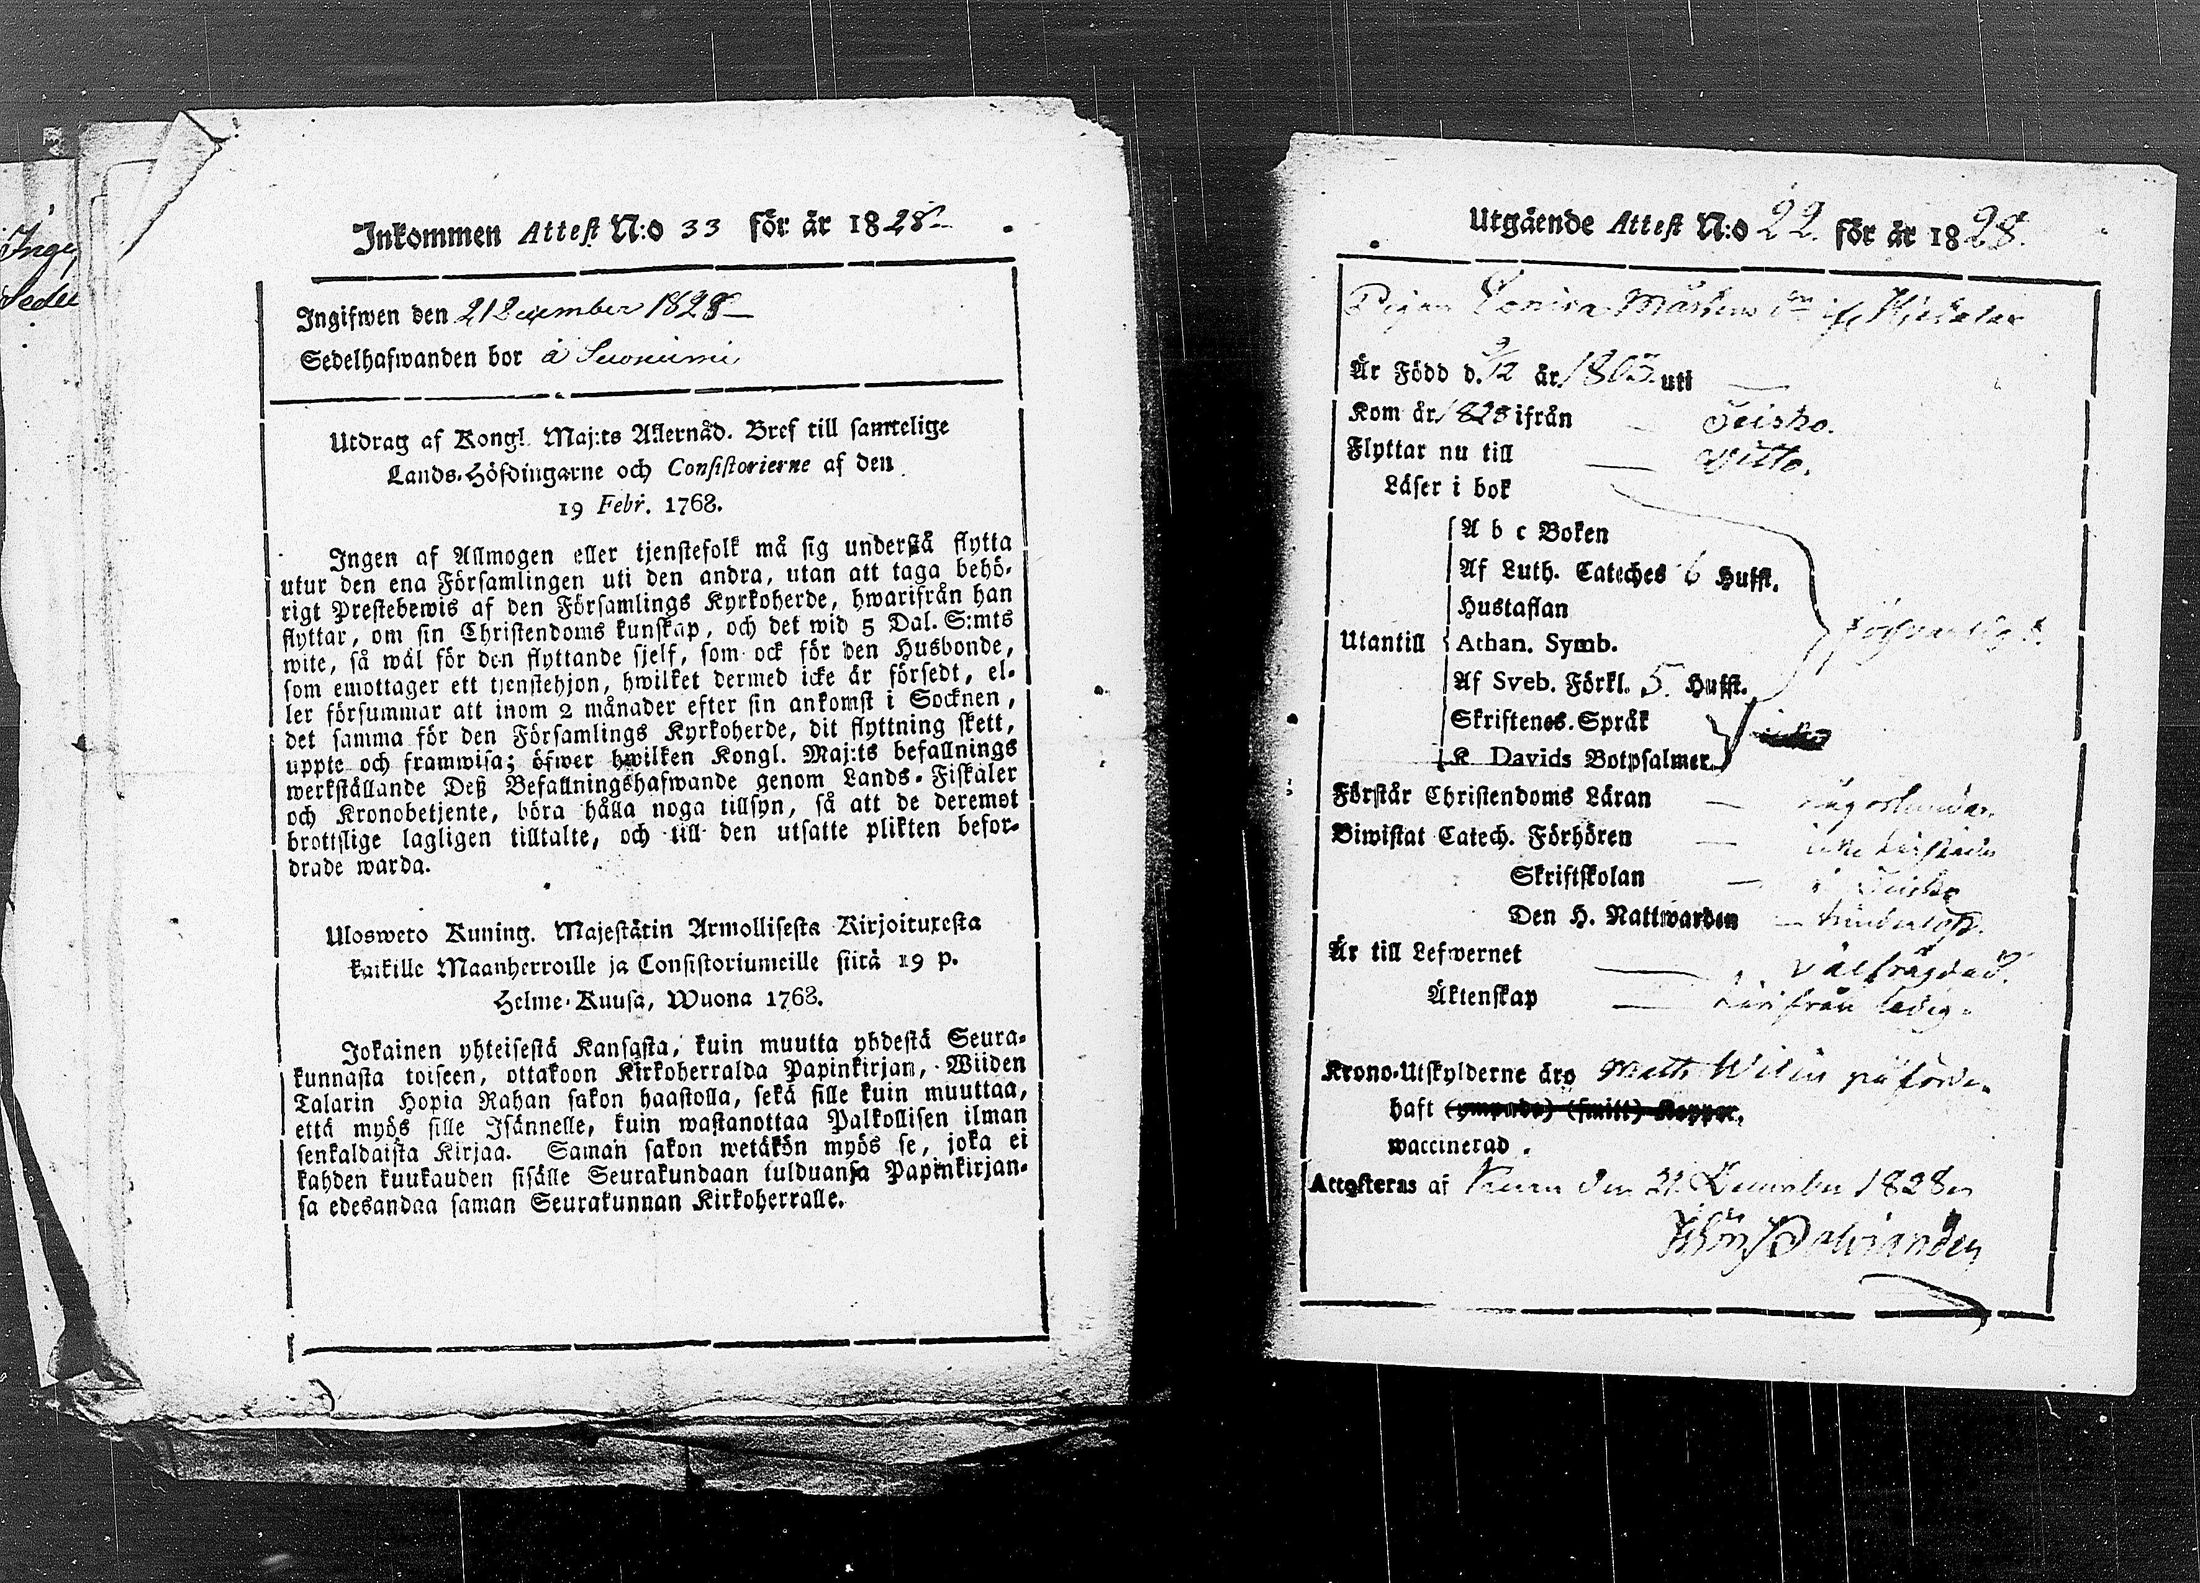 Inge
Sedel
Inkommen Attest N:o 33 för år 1828
Ingifwen den 21 December 1828
Sedelhafwanden bor å Suoniemi
Utdrag af Kongl. Maj:ts Allernåd. Bref till samtelige
Lands-Höfdingarne och Consistorierne af den
19 Febr. 1768.
Ingen af Allmogen eller tjenstefolk må sig understå flytta
utur den ena Församlingen uti den andra, utan att taga behö-
rigt Prestebewis af den Församlings Kyrkoherde, hwarifrån han
flyttar, om sin Christendoms kunskap, och det wid 5 Dal. S:mts
wite, så wäl för den flyttande sjelf, som ock för den Husbonde,
som emottager ett tjenstehjon, hwilket dermed icke är försedt, el-
ler försummar att inom 2 månader efter sin ankomst i Socknen,
det samma för den Församlings Kyrkoherde, dit flyttning skett,
uppte och framwisa; öfwer hwilken Kongl. Maj:ts befallnings
werkställande Deß Befallningshafwande genom Lands-Fiskaler
och Kronobetjente, böra hålla noga tillsyn, så att de deremot
brottslige lagligen tilltalte, och till den utsatte plikten befor-
drade warda.
Uloswero Kuning. Majestätin Armollisesta Kirjoituxesta
kaikille Maanherroille ja Consistoriumeille siitä 19 p.
Helme-Kuusa, Wuona 1768.
Jokainen yhteisestä Kansasta, kuin muutta yhdestä Seura-
kunnasta toiseen, ottakoon Kirkoherralda Papinkirjan, Wiiden
Talarin Hopia Rahan sakon haastolla, sekä sille kuin muuttaa,
että myös sille Isännelle, kuin wastanottaa Palkollisen ilman
senkaldaista Kirjaa. Saman sakon wetäkön myös se, joka ei
kahden kuukauden sisälle Seurakundaan tulduansa Papinkirjan-
sa edesandaa saman Seurakunnan Kirkoherralle.
Utgående Attest N:o 22. för år 1828.
Pigan Lovisa Mårtens dr if.
Är Född d. 9/12 år 1805 uti
Kom år 1828 ifrån Teisko.
Flyttar nu till ditto.
Läser i bok
A b c Boken
Af Luth. Cateches 6 Hufst.
Hustaflan
Utantill Athan. Symb. försvarligt.
Af Sveb. Förkl. 5. Hufst.
Skriftenes Språk
K Davids Botpsalmer
Förstår Christendoms Läran någorlunda.
Biwistat Catech. Förhören icke härstädes
Skriftskolan i Teisko
Den H. Nattwarden
Är till Lefwernet välfrägdad.
Äktenskap härifrån ledig.
Krono-Utskylderne äro påförde.
haft (ympade) (smitt) Koppor,
waccinerad.
Attesteras af den 21 December 1828